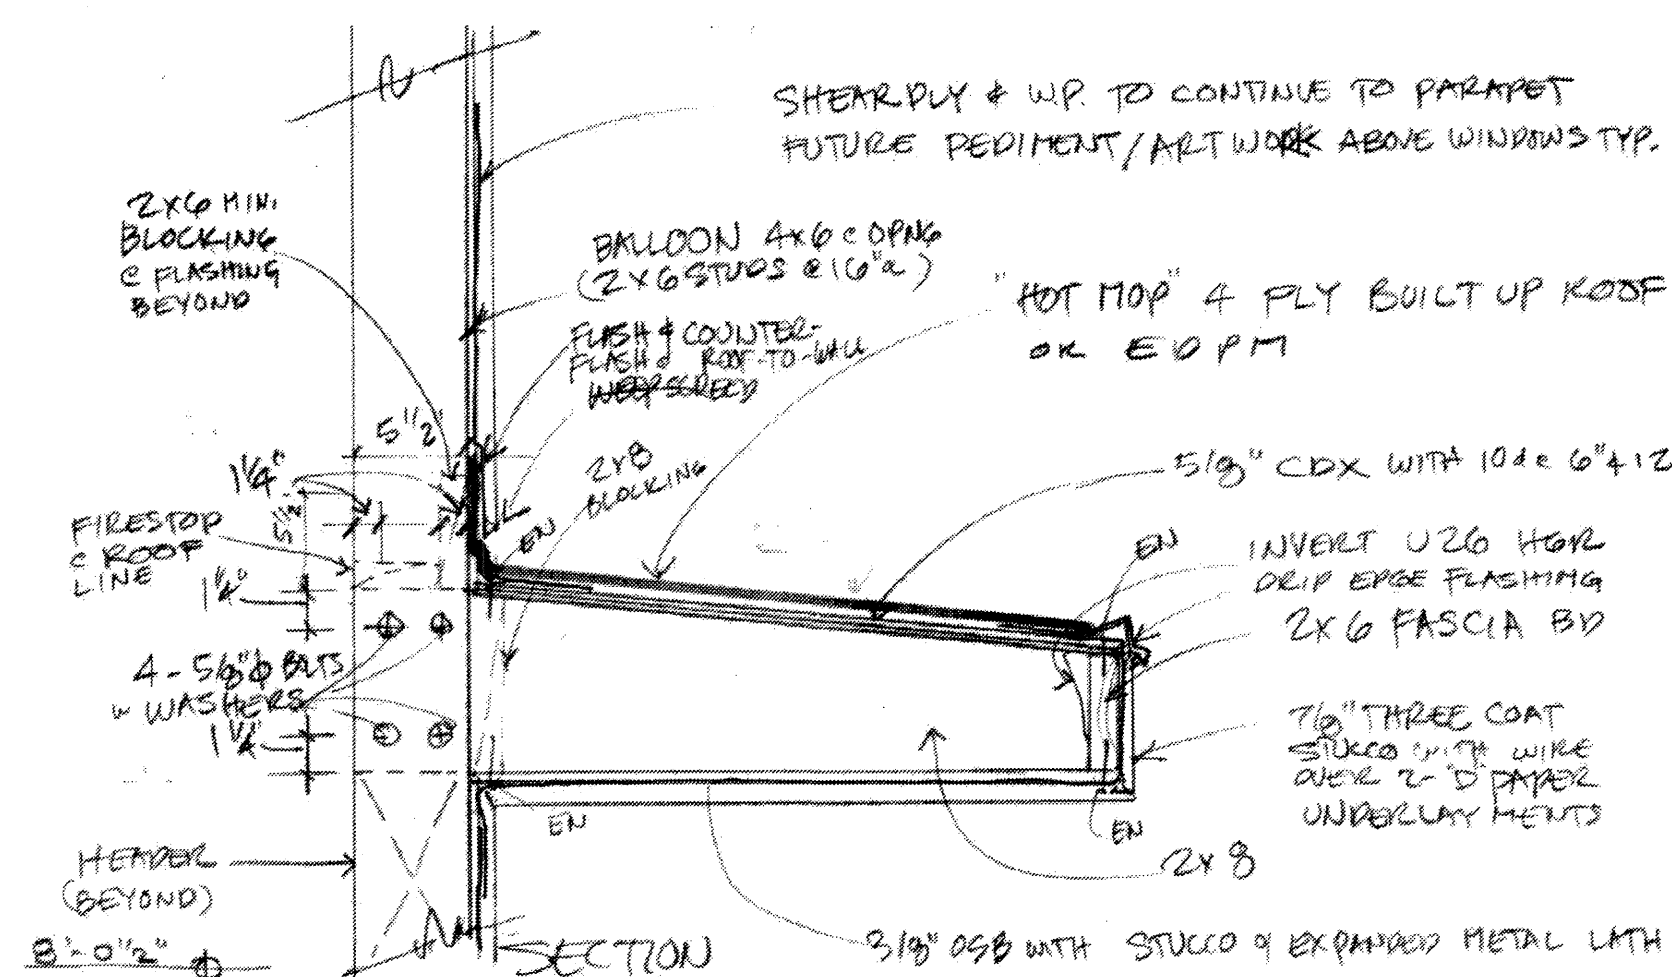 SHEARPLY & W.P. TO CONTINUE TO PARAPET
FUTURE PEDIMENT/ARTWORK ABOVE WINDOWS TYP.
2X6 MIN.
BLOCKING
@ FLASHING
BEYOND
BALLOON 4x6 @ OPNG
(2X6 STUDS @ 16"
"HOT MOP" 4 PLY BUILT UP ROOF
OR EDPM
FLASH & COUNTER-
FLASH @ ROOF-TO-WALL
WEEP SCREED
5 1/2"
2x8
BLOCKING
1 1/4"
5 1/2"
5/8" CDX WITH 10d @ 6" & 12
FIRESTOP
@ ROOF
LINE
EN
EN
INVERT U26 HGR
DRIP EDGE FLASHING
1 1/4"
2X6 FASCIA BD
4 - 5/8"ϕ BLTS
w WASHERS
1 1/4"
7/8" THREE COAT
STUCCO WITH WIRE
OVER 2- "D" PAPER
UNDERLAYMENTS
EN
EN
HEADER
(BEYOND)
2x8
8'-0 1/2"
SECTION
3/8" OSB WITH STUCCO & EXPANDED METAL LATH